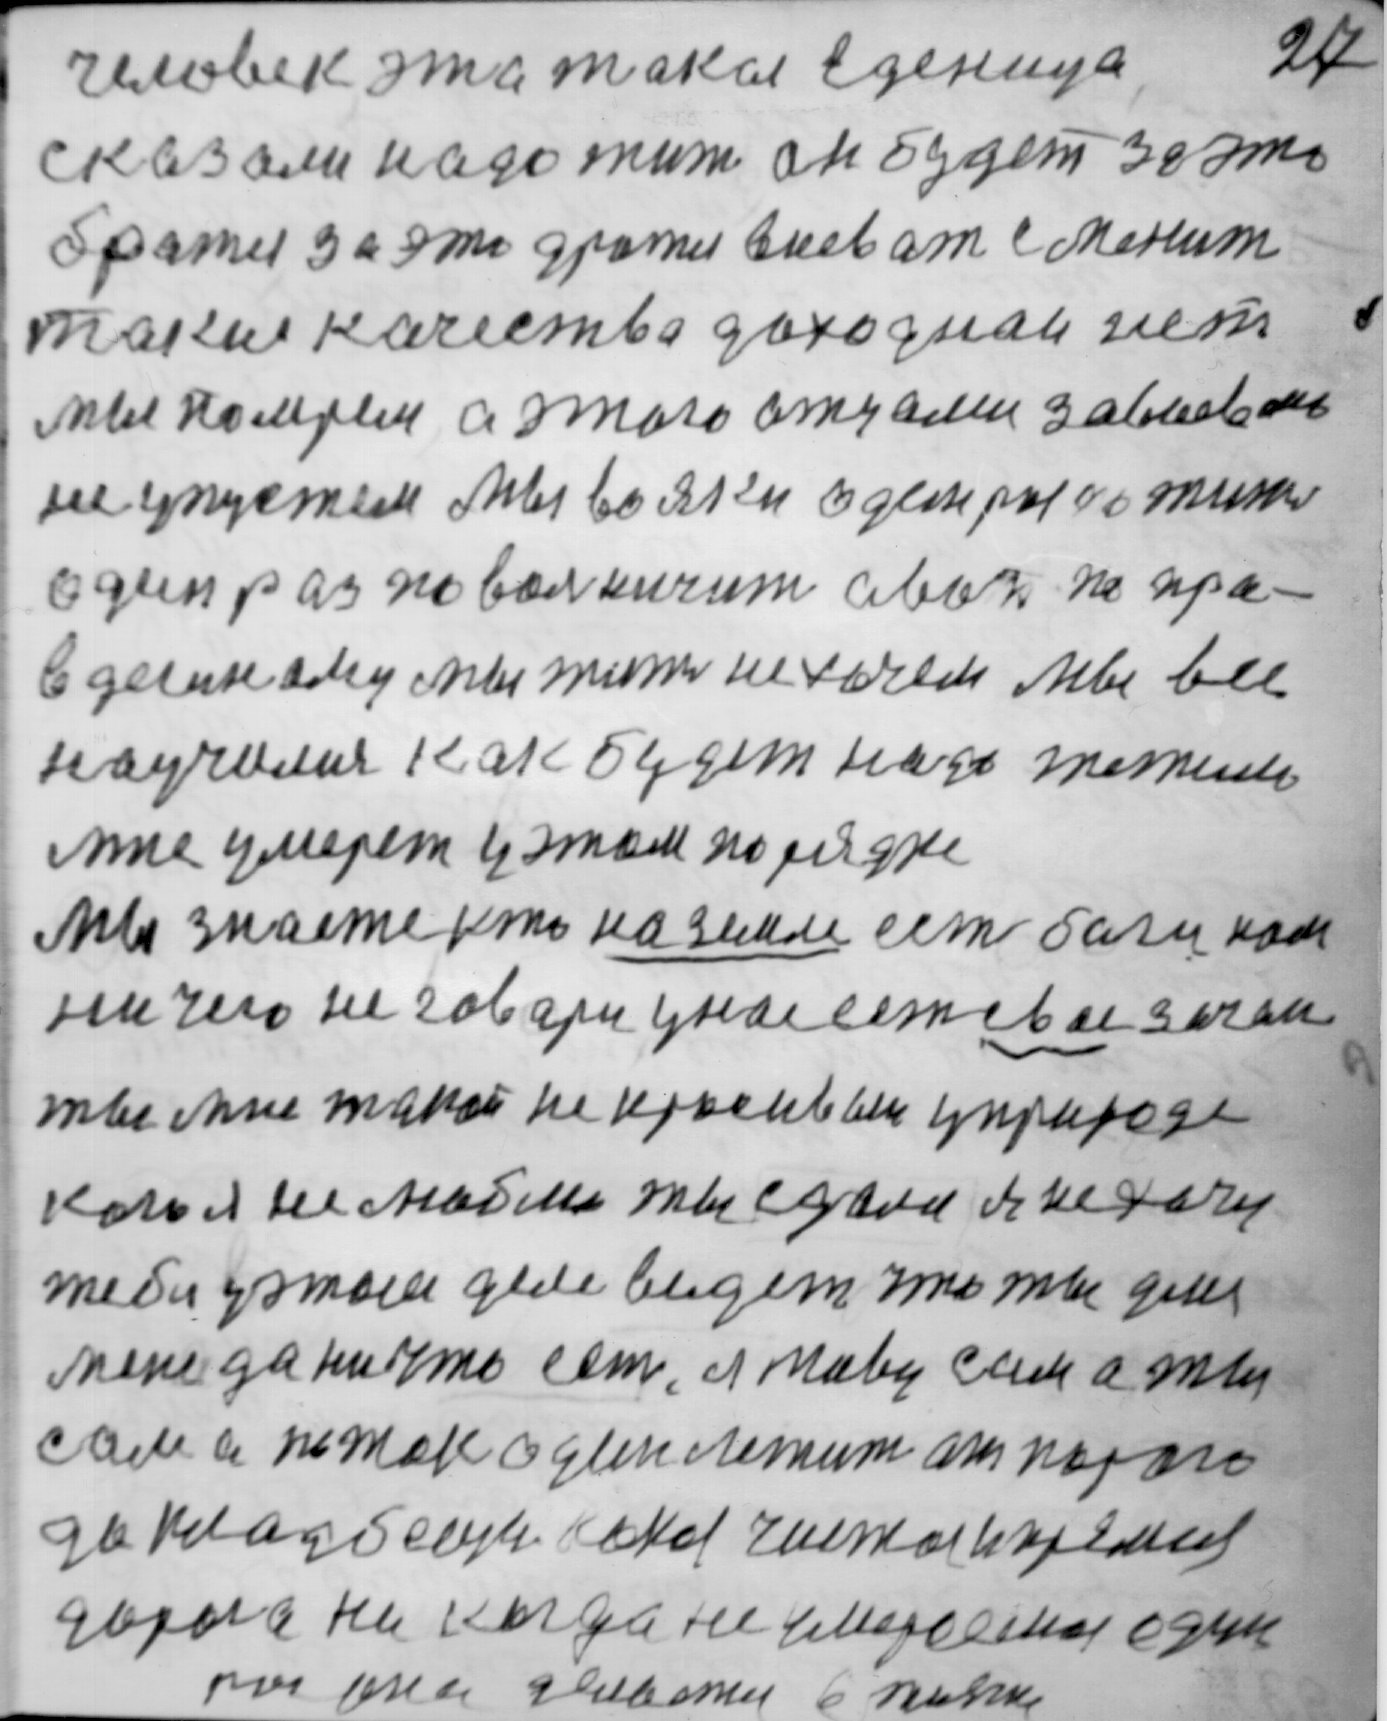 27
человек эта такая Еденица
сказали надо жит он будет за это
братся за это дратся воеват сменит
такие качества доходнай нет
мы помрем а этого отцами завоевано
не упустем Мы вояки оден раз жить
один раз повояничит абы по пра-
вдешнаму мы жить не хочем мы все
научился как будет надо
мне умерет у этом порядке
Мы знаете кто на земле ест боги нам
ничего не говари у нас ест свае
ты мне такой не красивыи у природе
кого я не люблю ты сдала я не хочу
тебя у этом деле видет что ты для
мене да ни што ест, я живу сам а ты
сам а паток оден летит от порога
до кладбеща кака чистая прямая
дорога ни когда не один
раз она делается в жизне